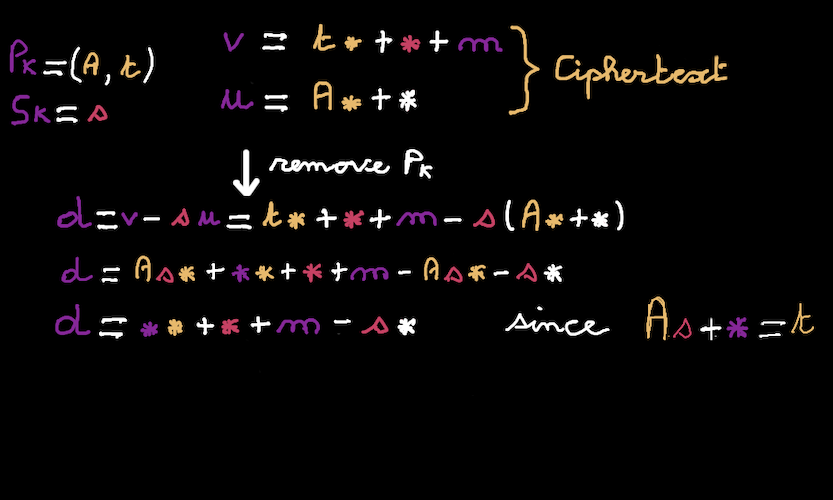 Pk=(A, t)
Sk= s
v = t* + * + m
u = A* + *
Ciphertext
remove Pk
d = v - su = t* + * + m - s(A* + *)
d = As* + ** + * + m - As* - s*
d = ** + * + m - s*
since As + * = t